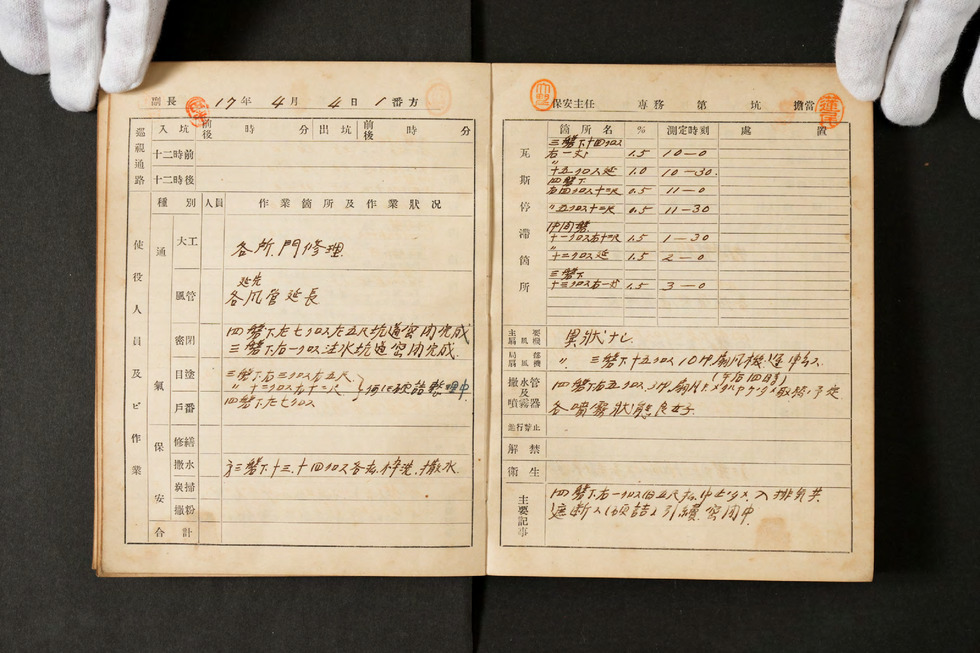 副長 17年4月4日1番方
巡視通路 入坑 前後 時 分 出坑 前後 時 分
十二時前
十二時後
使役人員及ビ作業
種別 人員 作業箇所及作業狀況
通氣
大工 各所門修理
風管 延先
各風管延長
密閉 四盤下左七クロス左五尺坑道密閉完成
三盤下右一クロス注水坑道密閉完成
目塗 三盤下右三クロス右五尺
〃 十三クロス右十二尺
戸番 四盤下左七クロス
保安
修繕
撒水 三盤下十三、十四クロス各 撒水
炭掃
撒粉
合計
保安主任 専務 第 坑 擔當
瓦斯停滯箇所
箇所名 % 測定時刻 處置
三盤下十四クロス
右一 1.5 10-0
〃
十五クロス延 1.0 10-30
四盤下
右四クロス十二尺 0.5 11-0
〃五クロス十二尺 0.5 11-30
仲間盤
十一クロス右十二尺 1.5 1-30
〃
十二クロス延 1.5 2-0
三盤下
十三クロス右一 1.5 3-0
主要扇風機 異狀ナシ
局部扇風機 〃 三盤下十五クロス10 扇風機運中
(午后四時)
撒水管及噴霧器 四盤下右五クロス 取替予定
各噴霧狀態良好
進行禁止
解禁
衛生
主要記事 四盤下右一クロス 五尺 入排氣共
遮断 引續密閉中